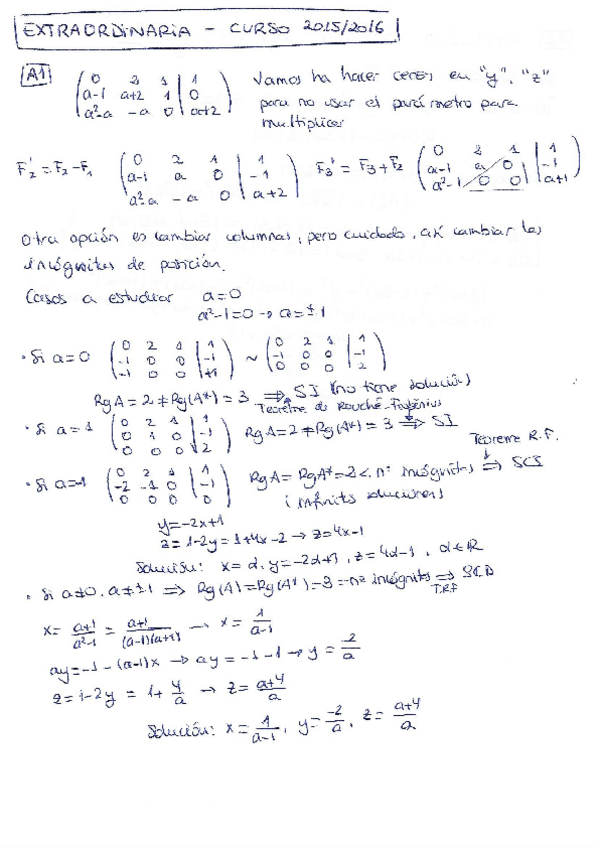 EXTRAORDINARIA - CURSO 2015/2016
A1 ( 0 2 1 | 1 ; a-1 a+2 1 | 0 ; a²-a -a 0 | a+2 ) Vamos ha hacer ceros en "y", "z"
para no usar el parámetro para
multiplicar
F2' = F2 - F1 ( 0 2 1 | 1 ; a-1 a 0 | -1 ; a²-a -a 0 | a+2 ) F3' = F3 + F2 ( 0 2 1 | 1 ; a-1 a 0 | -1 ; a²-1 0 0 | a+1 )
Otra opción es cambiar columnas, pero cuidado, al cambiar las
incógnitas de posición.
Casos a estudiar a=0
a²-1=0 → a=±1
· Si a=0 ( 0 2 1 | 1 ; -1 0 0 | -1 ; -1 0 0 | +1 ) ~ ( 0 2 1 | 1 ; -1 0 0 | -1 ; 0 0 0 | 2 )
RgA = 2 ≠ Rg(A*) = 3 ⟹ SI (no tiene solución)
Teorema de Rouché-Frobenius
· Si a=1 ( 0 2 1 | 1 ; 0 1 0 | -1 ; 0 0 0 | 2 ) RgA = 2 ≠ Rg(A*) = 3 ⟹ SI
Teorema R.F.
· Si a=-1 ( 0 2 1 | 1 ; -2 -1 0 | -1 ; 0 0 0 | 0 ) RgA = RgA* = 2 < nº incógnitas ⟹ SCI
(infinitas soluciones)
y=-2x+1
z=1-2y=1+4x-2 → z=4x-1
Solución: x=α, y=-2α+1, z=4α-1, α∈R
· Si a≠0, a≠±1 ⟹ Rg(A)=Rg(A*)=3=nº incógnits ⟹ SCD
T.R.F
x= (a+1)/(a²-1) = (a+1)/((a-1)(a+1)) → x= 1/(a-1)
ay=-1-(a-1)x → ay=-1-1 → y= -2/a
z=1-2y = 1+ 4/a → z= (a+4)/a
Solución: x= 1/(a-1), y= -2/a, z= (a+4)/a